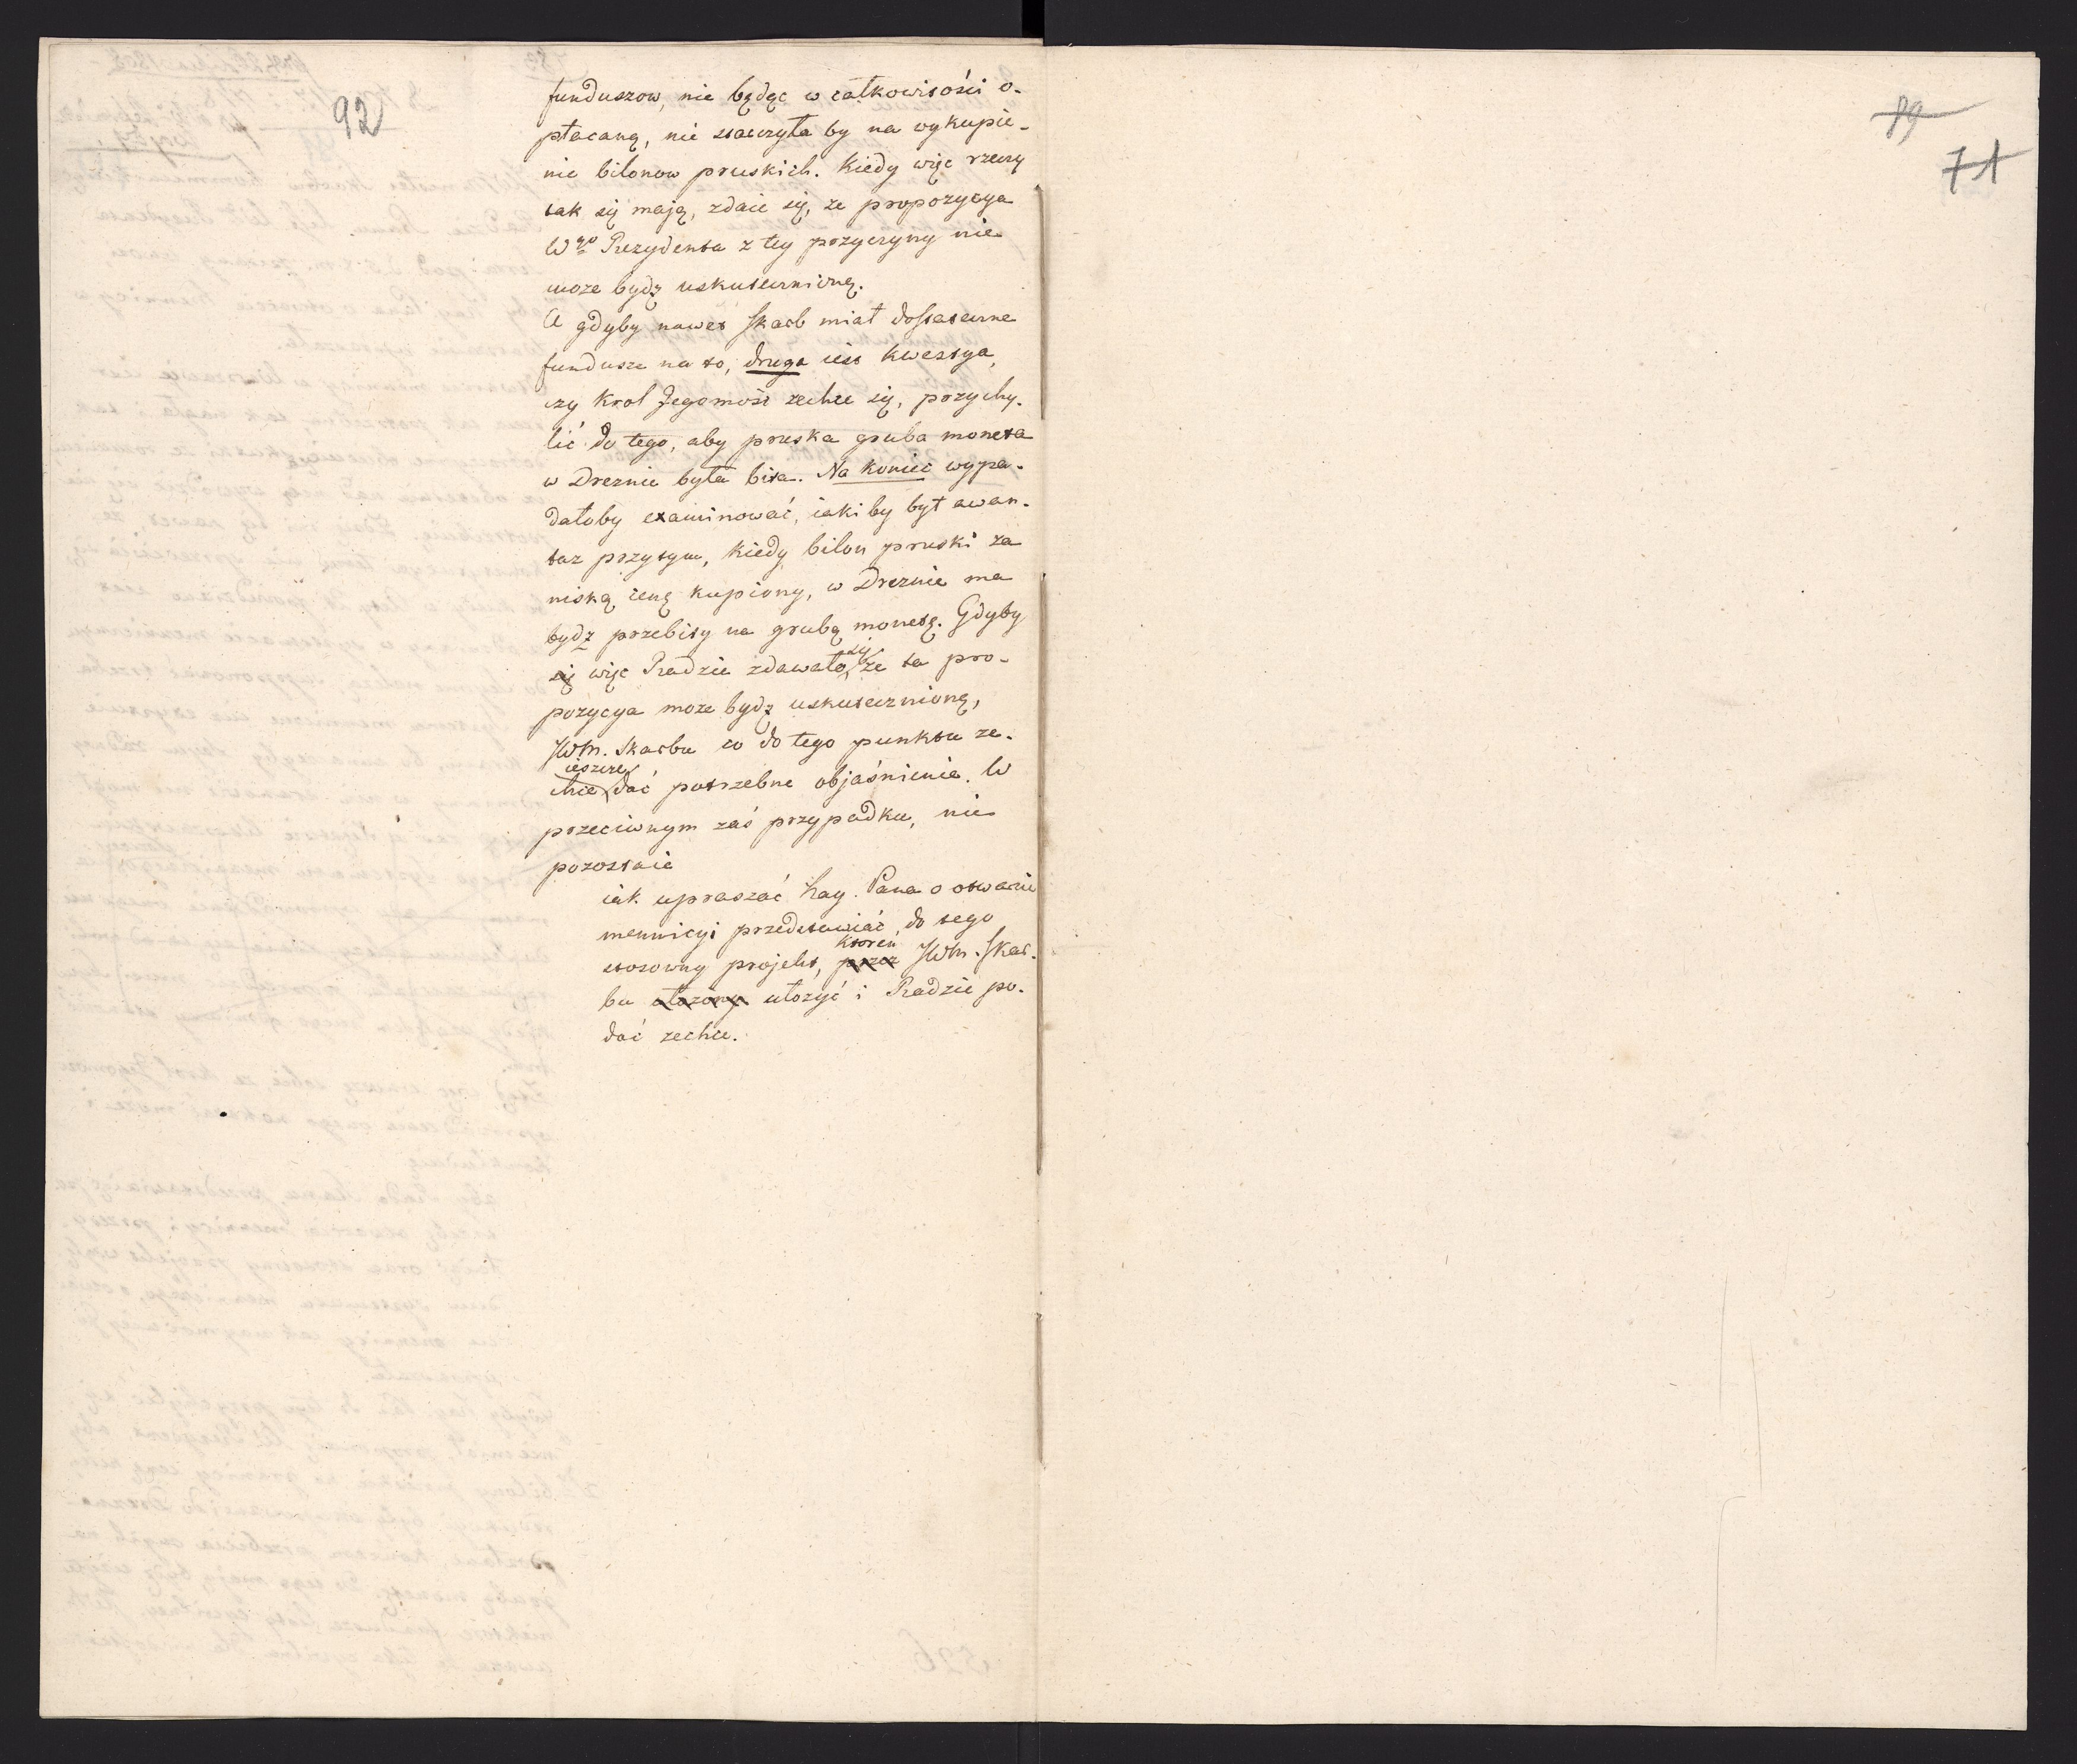 92
funduszow, nie będąc w całkowitości o-
płacaną, nie starczyła by na wykupie-
nie bilonow pruskich. Kiedy więc rzeczy
tak się mają, zdaie się, że propozycya
Wgo Prezydenta z tey przyczyny nie
może bydź uskutecznioną.
A gdyby nawet Skarb miał dostateczne
fundusze na to, druga iest kwestya,
czy Krol Jegomość zechce się, przychy-
lić do tego, aby pruska gruba moneta
w Dreznie była bita. Na koniec wypa-
dałoby examinować, iaki by był awan-
taz przytym, kiedy bilon pruski za
niską cenę kupiony, w Dreznie ma
bydź przebity na grubą monetę. Gdyby
się więc Radzie zdawało, się że ta pro-
pozycya może bydź uskutecznioną,
JWM. Skarbu co do tego punktu ze-
chce ieszcze dać potrzebne objaśnienie. W
przeciwnym zaś przypadku, nie
pozostaie
iak upraszać Nay. Pana o otwarcie
mennicy i przedstawiać do tego
stosowny projekt, przez ktoren JWM. Skar-
bu ułożony ułożyć i Radzie po-
dać zechce.
89
71